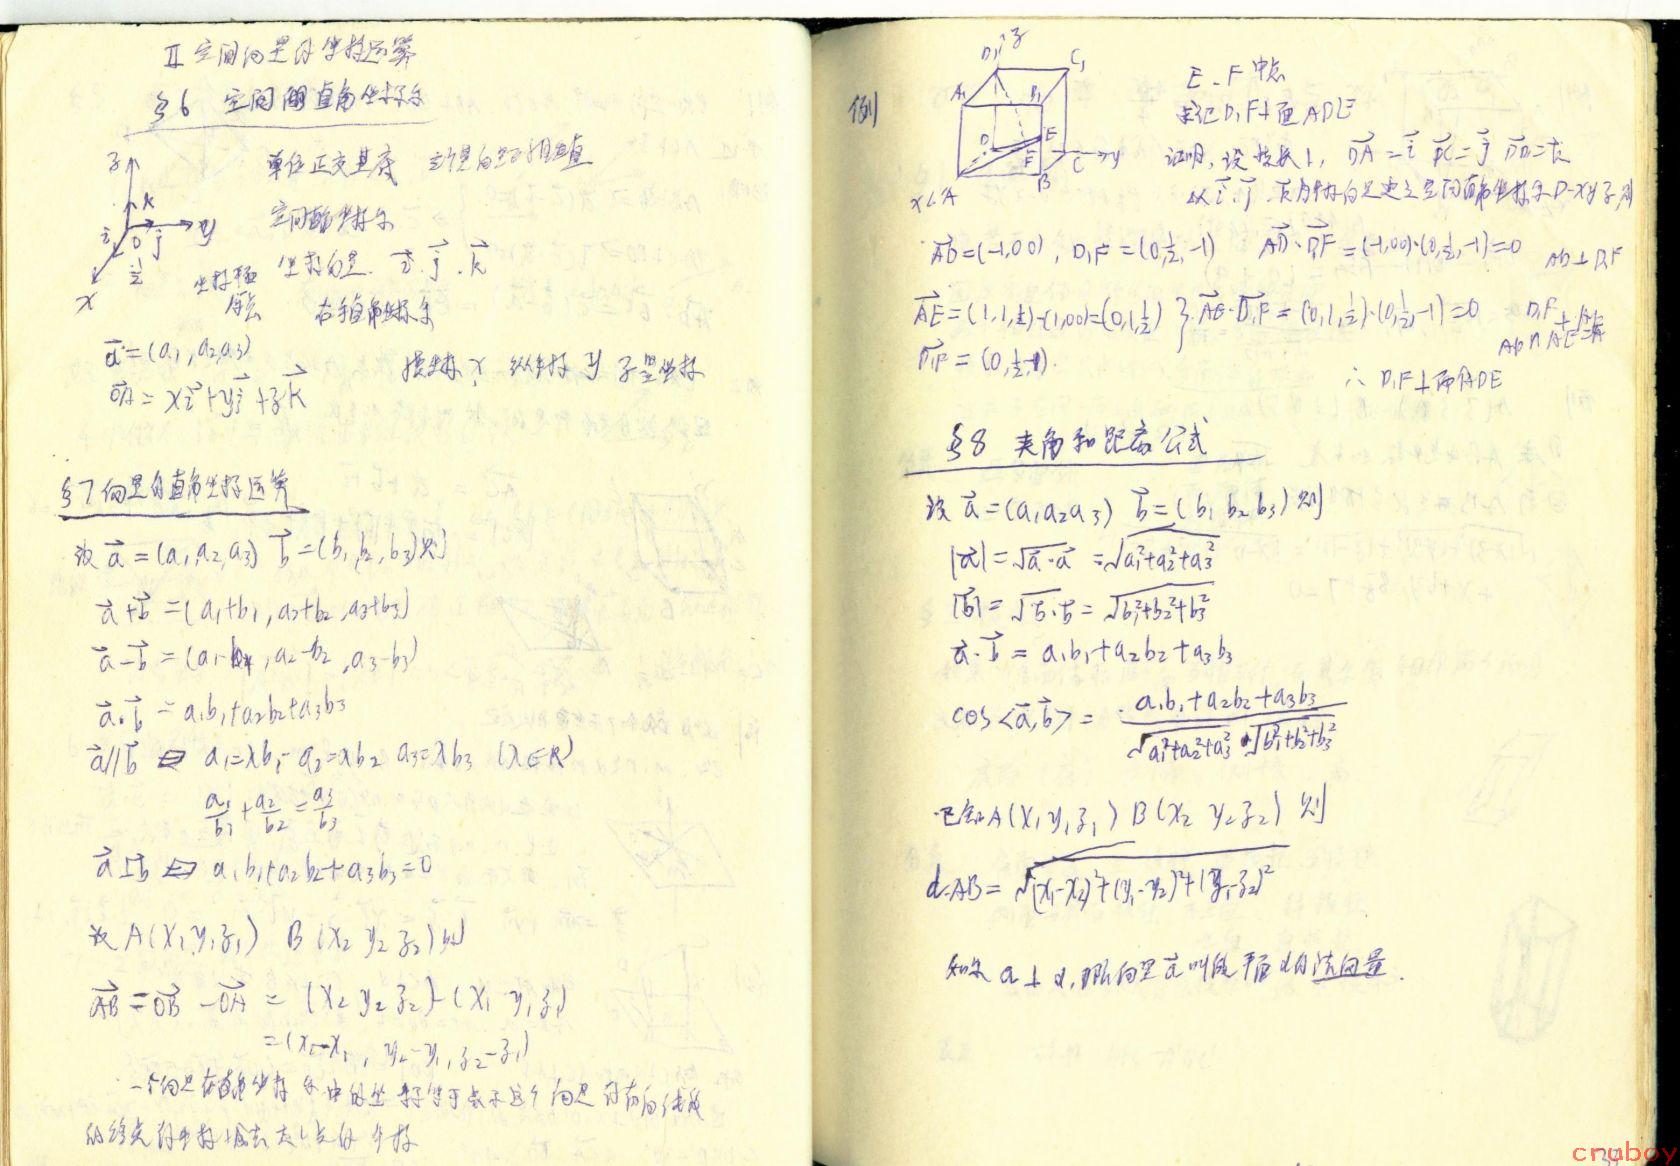 II 空间向量的坐标运算
§6 空间直角坐标系
z
单位正交基底 三个向量互相垂直
k
空间直角坐标系
i O j y
坐标向量 i⃗. j⃗. k⃗
x
坐标平面
右手直角坐标系
a⃗=(a₁,a₂,a₃)
横坐标x 纵坐标y z竖坐标
OA⃗=xi⃗+yj⃗+zk⃗
§7 向量的直角坐标运算
设a⃗=(a₁,a₂,a₃) b⃗=(b₁,b₂,b₃)则
a⃗+b⃗=(a₁+b₁,a₂+b₂,a₃+b₃)
a⃗-b⃗=(a₁-b₁,a₂-b₂,a₃-b₃)
a⃗·b⃗=a₁b₁+a₂b₂+a₃b₃
a⃗//b⃗ ⇔ a₁=λb₁ a₂=λb₂ a₃=λb₃ (λ∈R)
a₁/b₁+a₂/b₂=a₃/b₃
a⃗⊥b⃗ ⇔ a₁b₁+a₂b₂+a₃b₃=0
设A(x₁y₁z₁) B(x₂ y₂ z₂)则
AB⃗=OB⃗-OA⃗=(x₂ y₂ z₂)-(x₁ y₁z₁)
=(x₂-x₁, y₂-y₁,z₂-z₁)
一个向量在直角坐标系中的坐标等于表示这个向量的有向线段
的终点的坐标减去起点的坐标
例
D₁ z C₁
A₁ B₁
D E
F
C y
B
x A
E.F中点
求证D₁F⊥面ADE
证明:设棱长1, DA⃗=i⃗ DC⃗=j⃗ DD₁⃗=k⃗
以i⃗.j⃗.k⃗为坐标向量建立空间直角坐标系D-xyz,则
AD⃗=(-1,0,0), D₁F=(0,½,-1) AD⃗·D₁F⃗=(-1,0,0)·(0,½,-1)=0 AD⊥D₁F
AE⃗=(1,1,½)-(1,0,0)=(0,1,½) } AE⃗·D₁F⃗=(0,1,½)·(0,½,-1)=0
D₁F⃗=(0,½,-1).
AD∩AE=A
∴D₁F⊥面ADE
§8 夹角和距离公式
设a⃗=(a₁a₂a₃) b⃗=(b₁ b₂ b₃)则
|a⃗|=√a⃗·a⃗=√a₁²+a₂²+a₃²
|b⃗|=√b⃗·b⃗=√b₁²+b₂²+b₃²
a⃗·b⃗=a₁b₁+a₂b₂+a₃b₃
cos<a⃗,b⃗>=(a₁b₁+a₂b₂+a₃b₃)/(√a₁²+a₂²+a₃²·√b₁²+b₂²+b₃²)
已知A(x₁y₁z₁) B(x₂ y₂ z₂)则
d.AB=√(x₁-x₂)²+(y₁-y₂)²+(z₁-z₂)²
如果a⊥α,那么向量a⃗叫做平面α的法向量.
cruboy